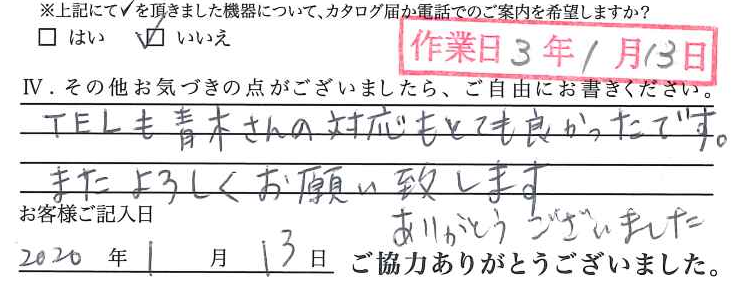 ※上記にて✓を頂きました機器について、カタログ届か電話でのご案内を希望しますか？
□ はい ☑ いいえ
作業日 3 年 1 月 13 日
Ⅳ．その他お気づきの点がございましたら、ご自由にお書きください。
TELも青木さんの対応もとても良かったです。
またよろしくお願い致します
ありがとうございました
お客様ご記入日
2020 年 1 月 13 日 ご協力ありがとうございました。